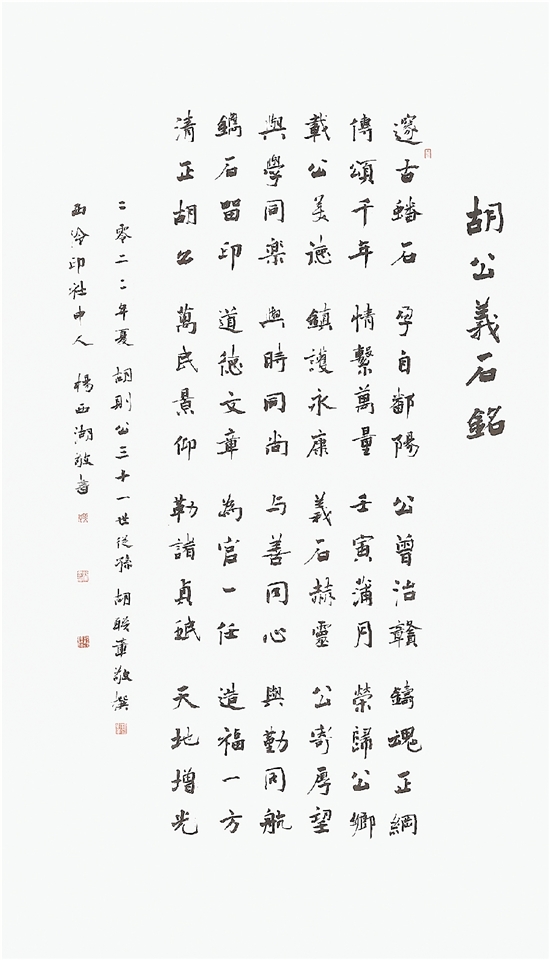 胡公義石銘
邃古蟠石 孕自鄱陽 公曾治贛 鑄魂正綱
傳頌千年 情繫萬量 壬寅蒲月 榮歸公鄉
載公美德 鎮護永康 義石赫靈 公寄厚望
與學同樂 與時同尚 与善同心 與勤同航
鐫石留印 道德文章 為官一任 造福一方
清正胡公 萬民景仰 勒諸貞珉 天地增光
二零二二年夏 胡則公三十一世從孫 胡联章敬撰
西泠印社中人 楊西湖敬書